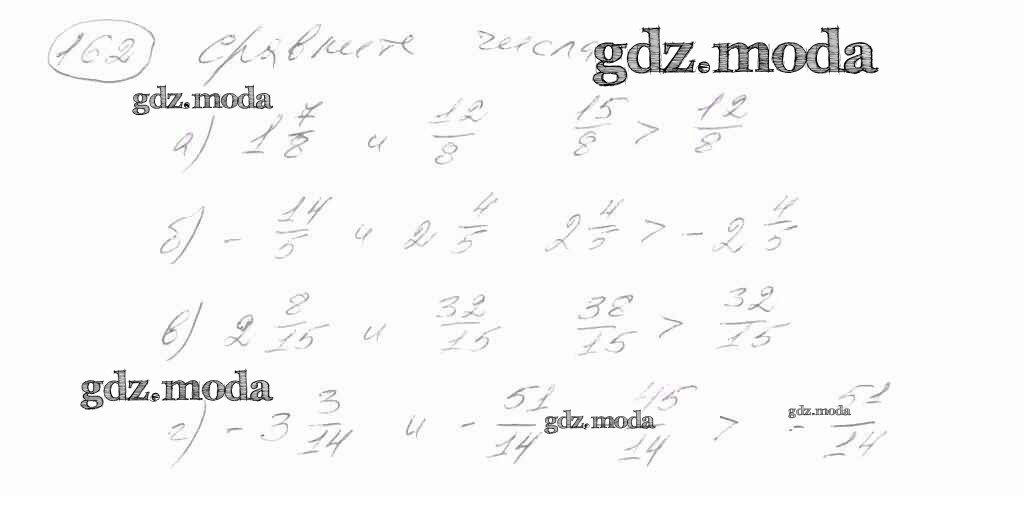 162 Сравните числа gdz.moda
gdz.moda
а) 1 7/8 и 12/8 15/8 > 12/8
б) - 14/5 и 2 4/5 2 4/5 > - 2 4/5
в) 2 8/15 и 32/15 38/15 > 32/15
gdz.moda
г) - 3 3/14 и - 51/14 45/14 > - 51/14
gdz.moda gdz.moda